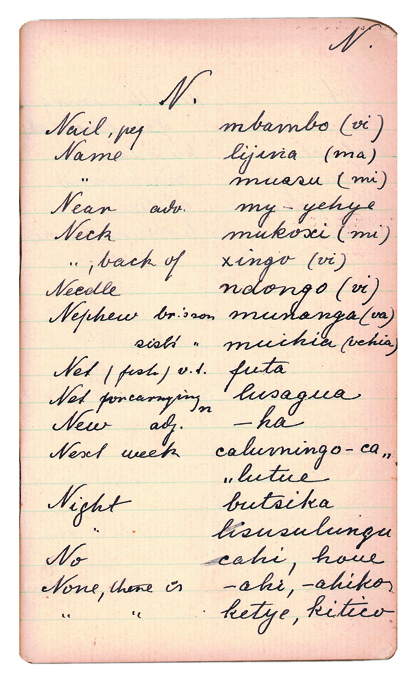 N.
N.
Nail, peg mbambo (vi)
Name lijina (ma)
" muasu (mi)
Near adv. my-yehye
Neck mukoxi (mi)
", back of xingo (vi)
Needle ndongo (vi)
Nephew br.'s son munanga (va)
sist's " muihia (vehia)
Net (fish) v.t. futa
Net for carrying n lusagua
New adj. -ha
Next week calumingo-ca,,
"lutue
Night butsika
" lisusulungu
No cahi, houe
None, there is -ahi, -ahiko
" " ketye, kitico